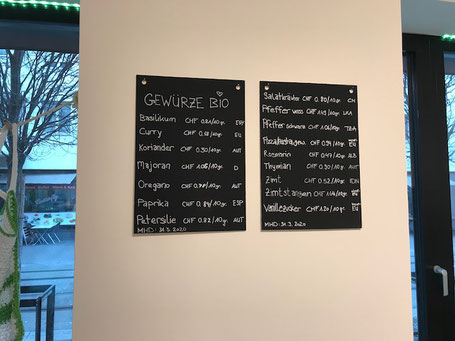 GEWÜRZE BIO
Basilikum CHF 0.81/10gr.
Curry CHF /10gr. EU
Koriander CHF 0.50/10gr. AUT
Majoran CHF 1.05/10gr. D
Oregano CHF /10gr. AUT
Paprika CHF /10gr. ESP
Petersilie CHF 0.82/10gr. AUT
MHD: 31.3.2020
Salatkräuter CHF 0.80/10gr. CH
Pfeffer weiss CHF /10gr. LKA
Pfeffer schwarz CHF /10gr.
CHF 0.54/10gr. EU
Rosmarin CHF 0.47/10gr. ALB
Thymian CHF 0.50/10gr. AUT
Zimt CHF 0.52/10gr.
Zimtstangen CHF /10gr.
Vanillezucker CHF 1.20/10gr. EU
MHD: 31.3.2020